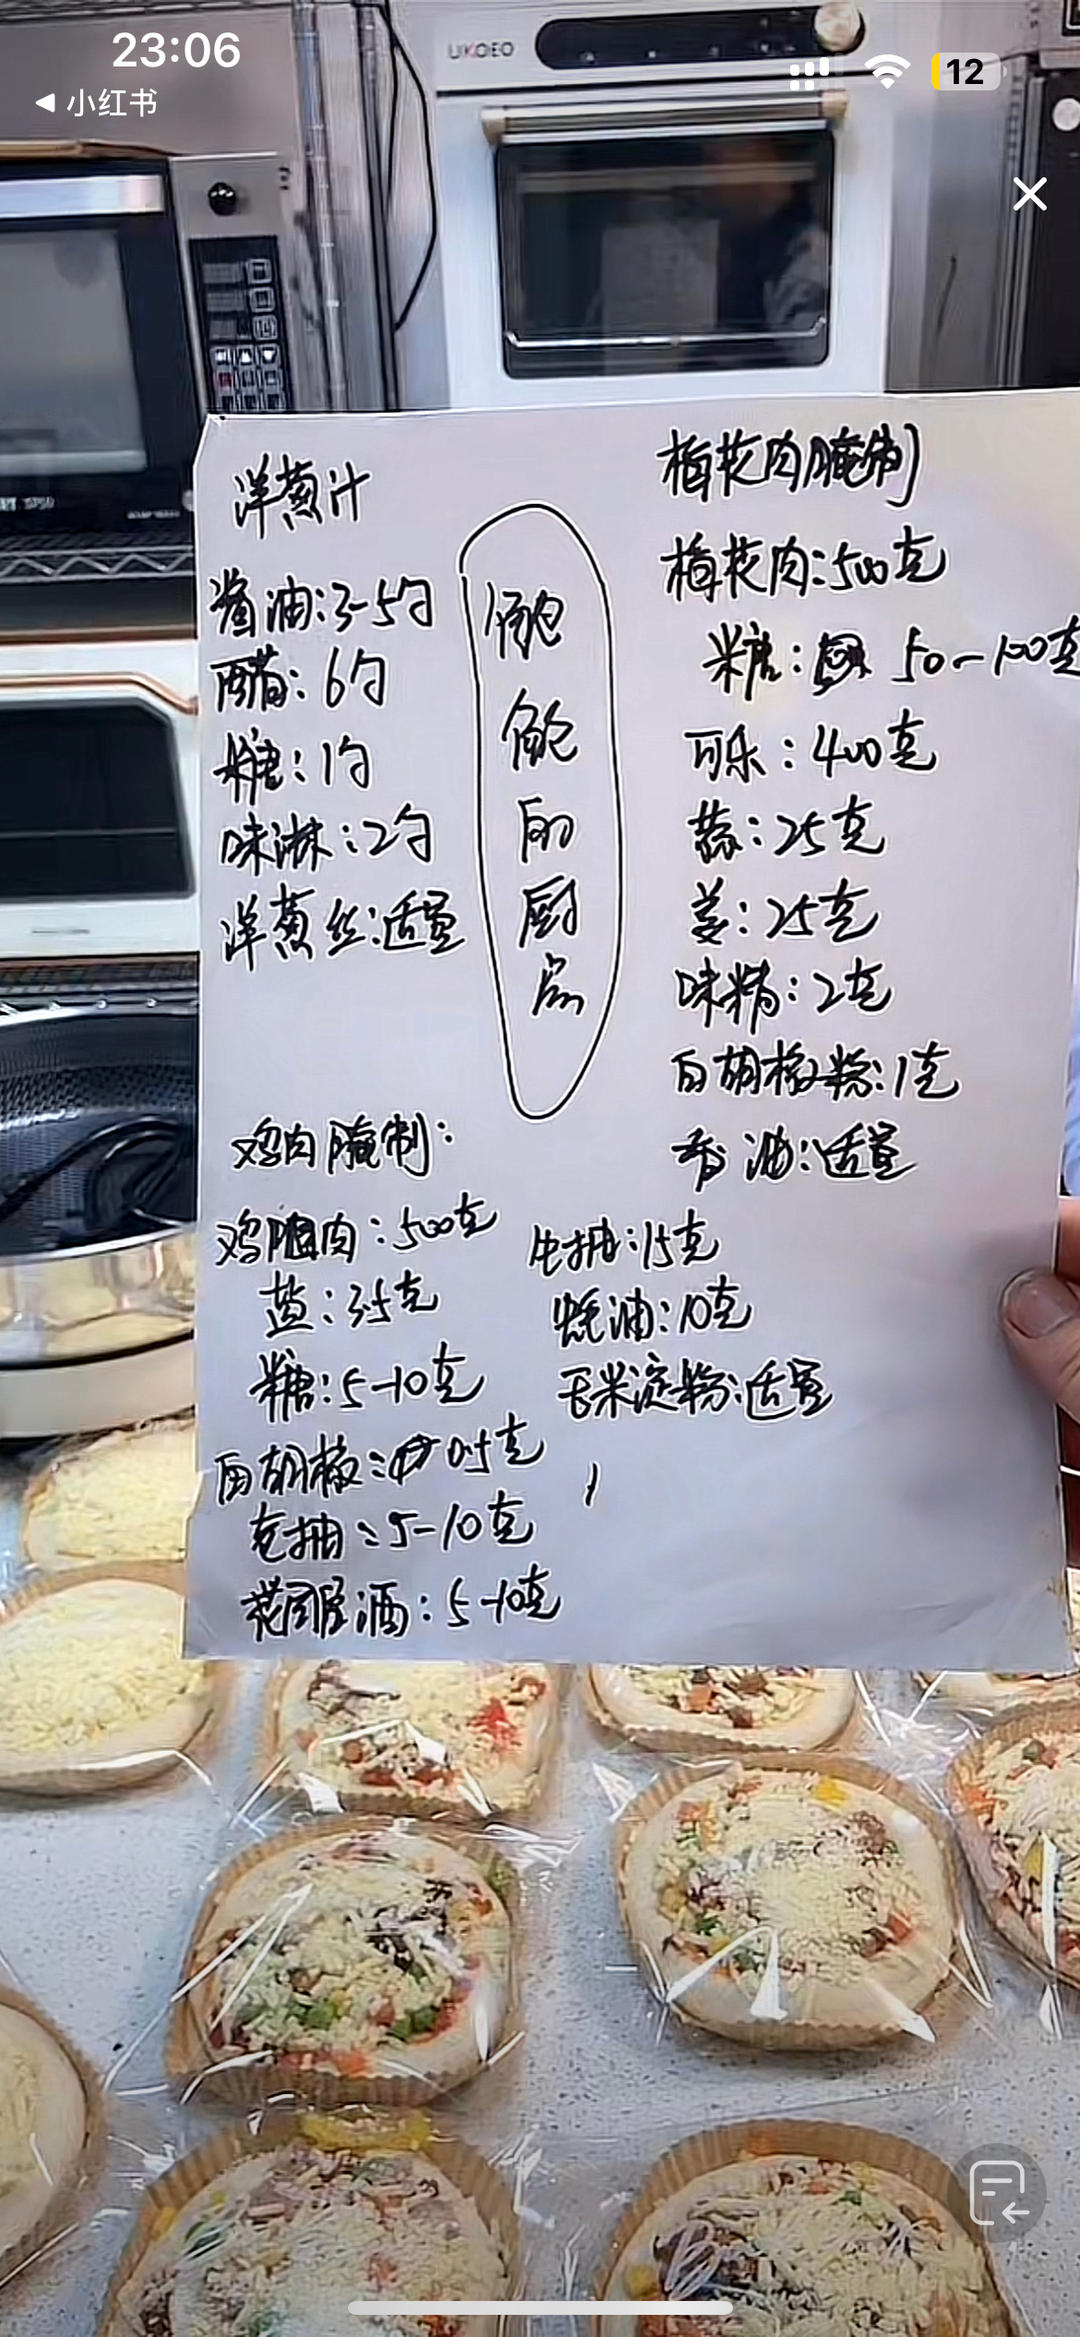 23:06
12
小红书
UKOEO
洋葱汁
酱油:3-5勺
醋:6勺
糖:1勺
味淋:2勺
洋葱丝:适量
的厨房
梅花肉腌制
梅花肉:500克
糖: 50-100克
可乐:400克
蒜:25克
姜:25克
味精:2克
白胡椒粉:1克
香油:适量
鸡肉腌制:
鸡腿肉:500克
盐:3.5克
糖:5-10克
白胡椒: 0.5克
老抽:5-10克
花雕酒:5-10克
生抽:15克
蚝油:10克
玉米淀粉:适量